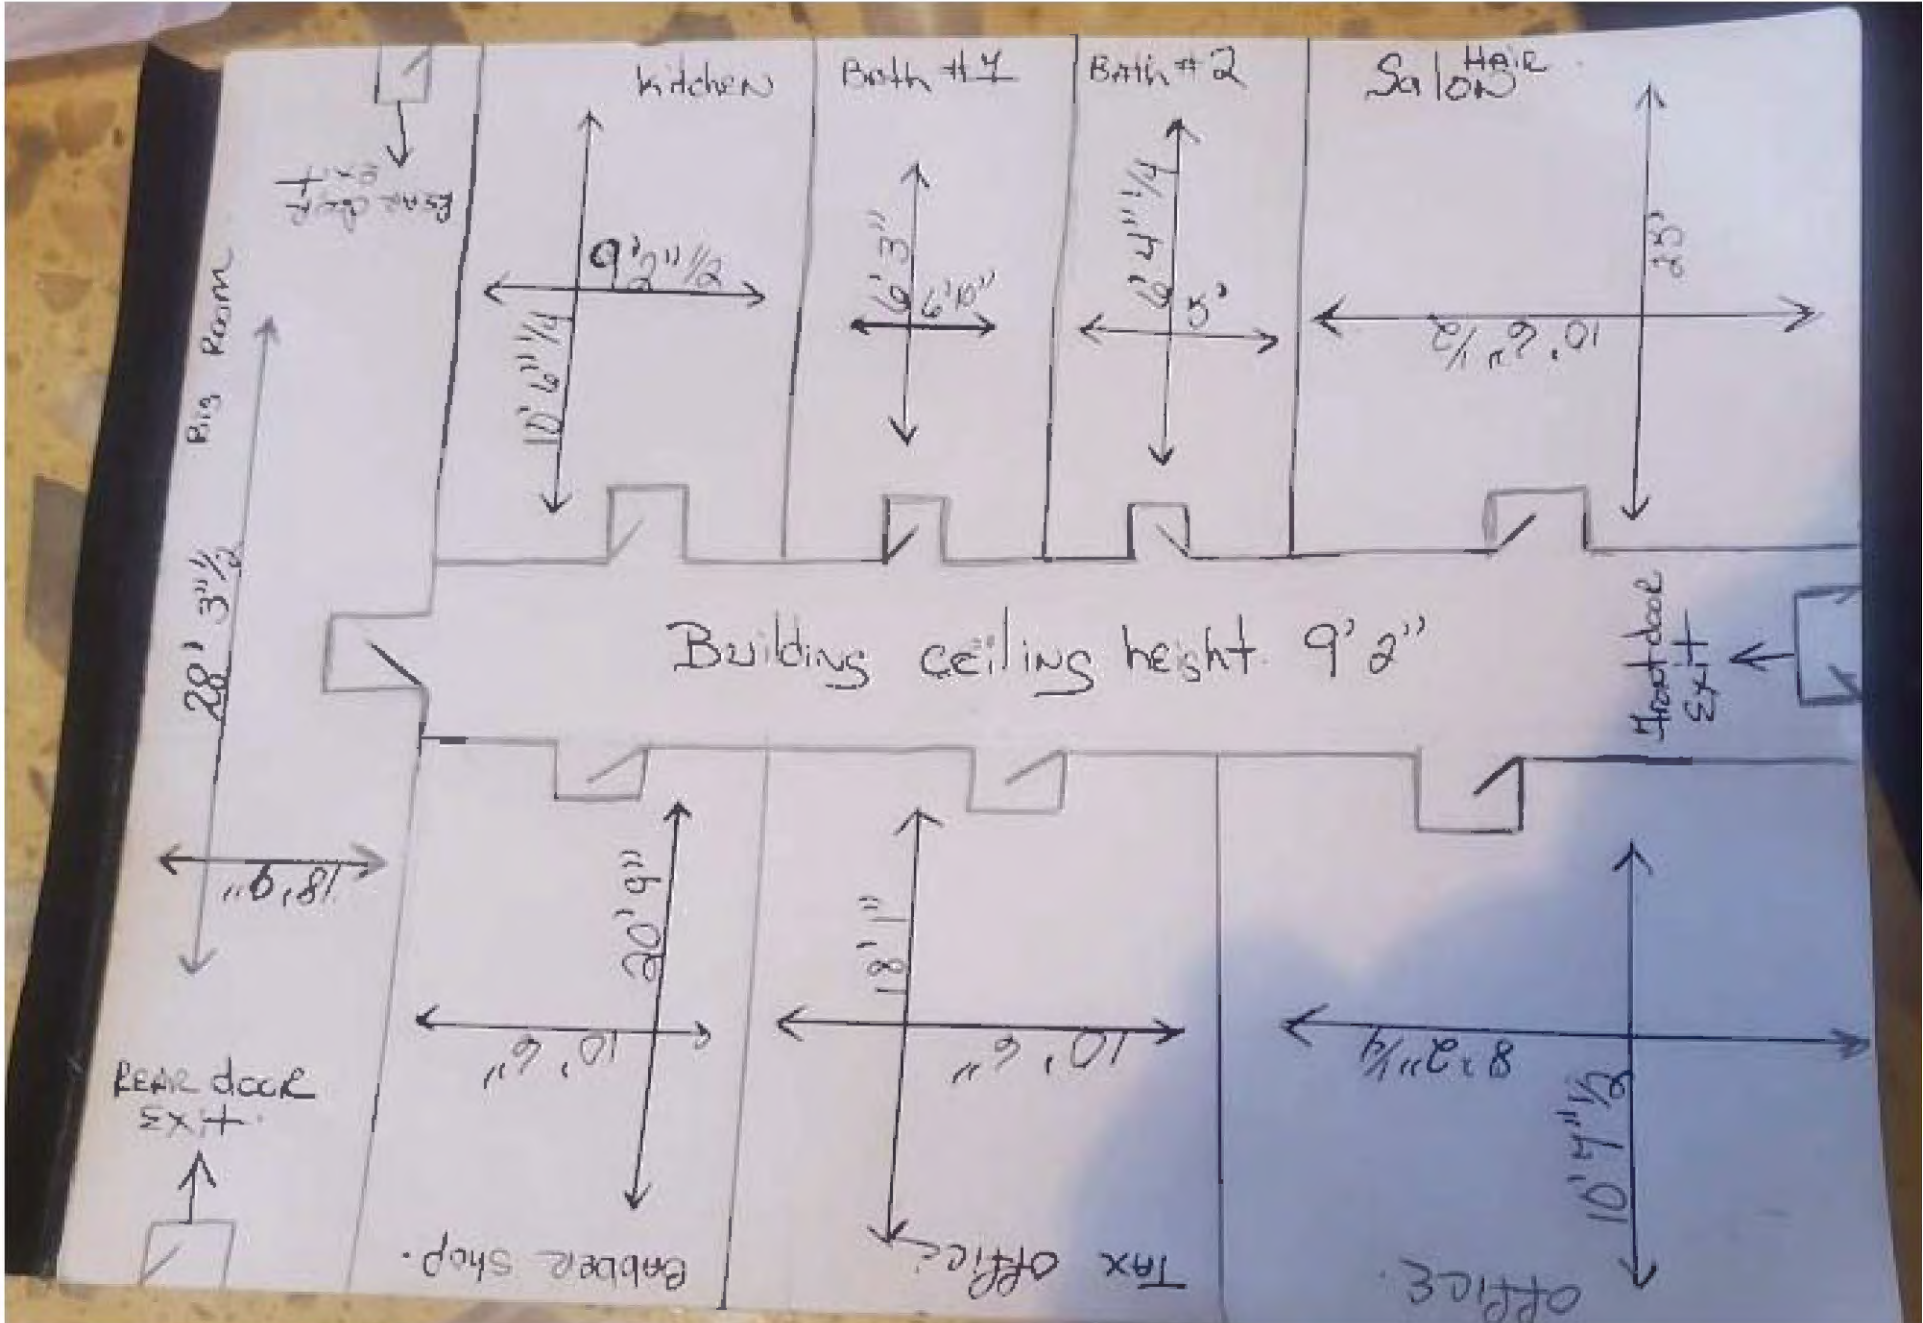 Kitchen
Bath #1
Bath #2
HAIR
Salon
REAR door
Exit
Big Room
9' 2" 1/2
10' 6" 1/4
6' 3"
6' 10"
6' 4" 1/4
5'
25'
10' 6" 1/2
28' 3" 1/2
18' 9"
Building ceiling height 9' 2"
Front door
Exit
REAR door
Exit
20' 9"
10' 6"
18' 1"
10' 6"
8' 2" 1/4
Babber Shop.
TAX Office
OFFICE.